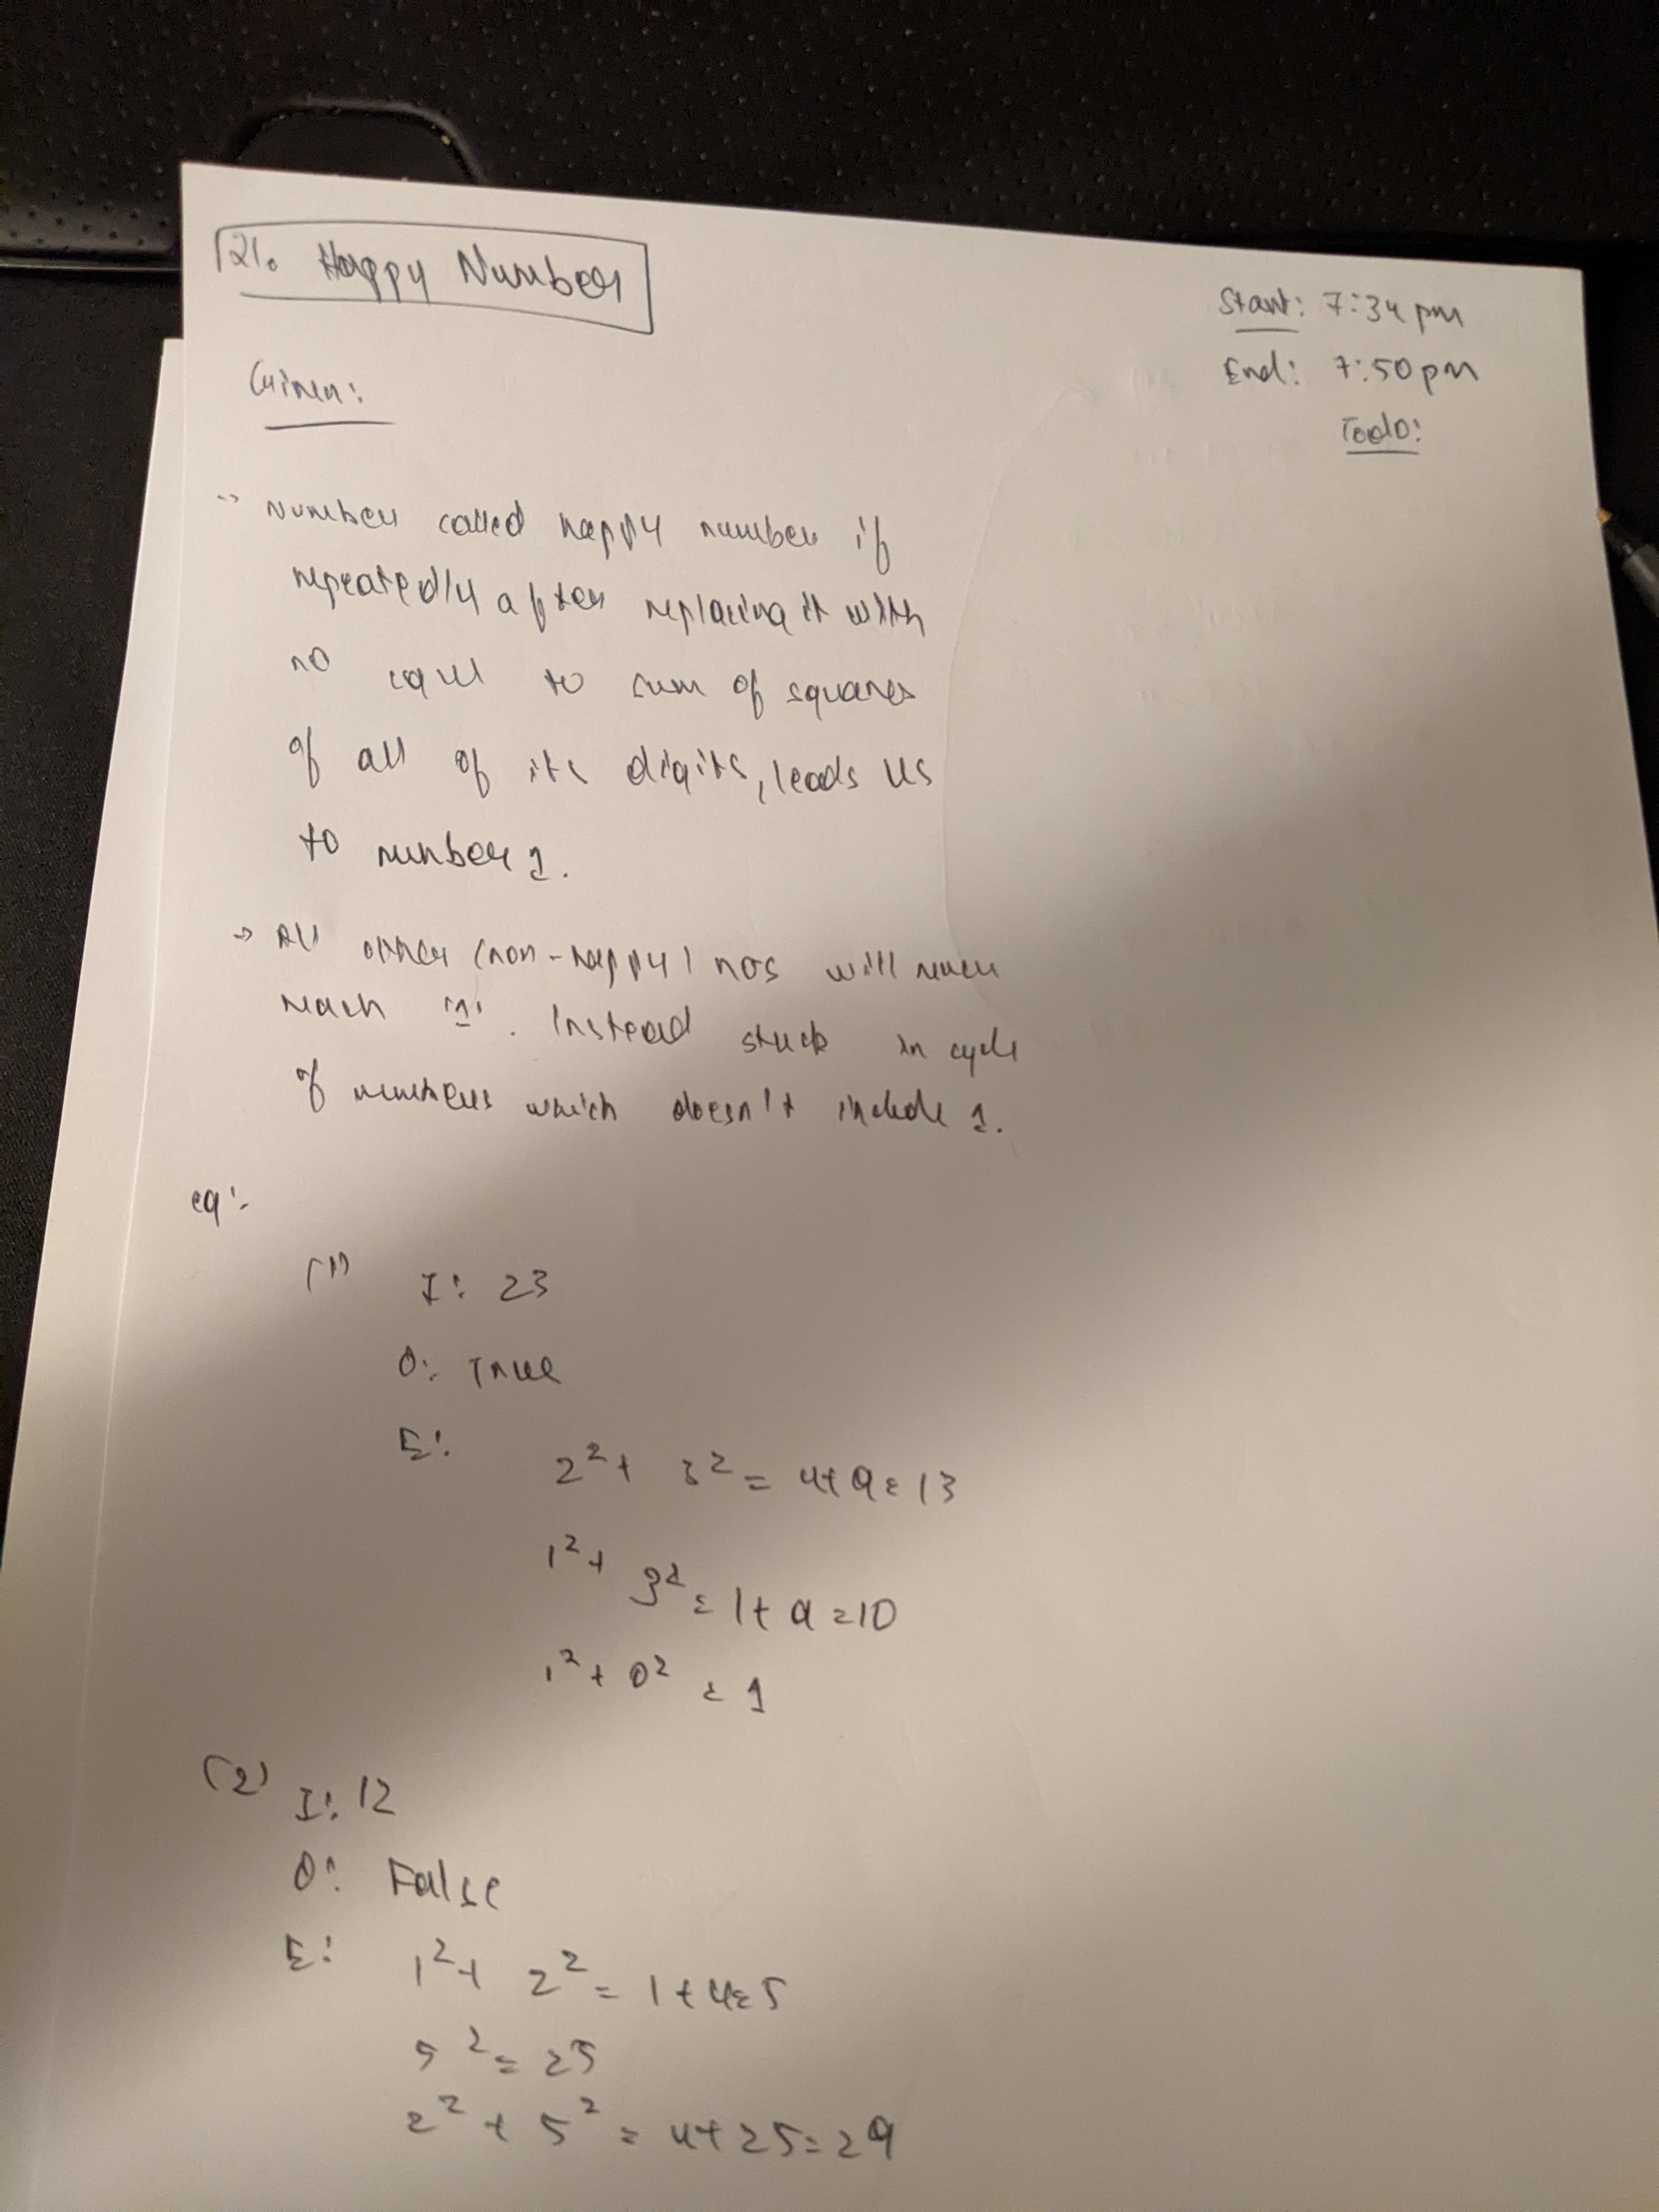 121. Happy Number
Start: 7:34 pm
End: 7:50 pm
Todo:
Given:
→ Number called happy number if
repeatedly after replacing it with
no equl to sum of squares
of all of its digits, leads us
to number 1.
→ All other (non-happy) nos will never
reach '1'. Instead stuck in cycle
of numbers which doesn't include 1.
eg:-
(1) I: 23
O: True
E: 2² + 3² = 4+9 = 13
1² + 3² = 1+9 = 10
1² + 0² = 1
(2) I: 12
O: False
E: 1² + 2² = 1+4=5
5² = 25
2² + 5² = 4+25 = 29